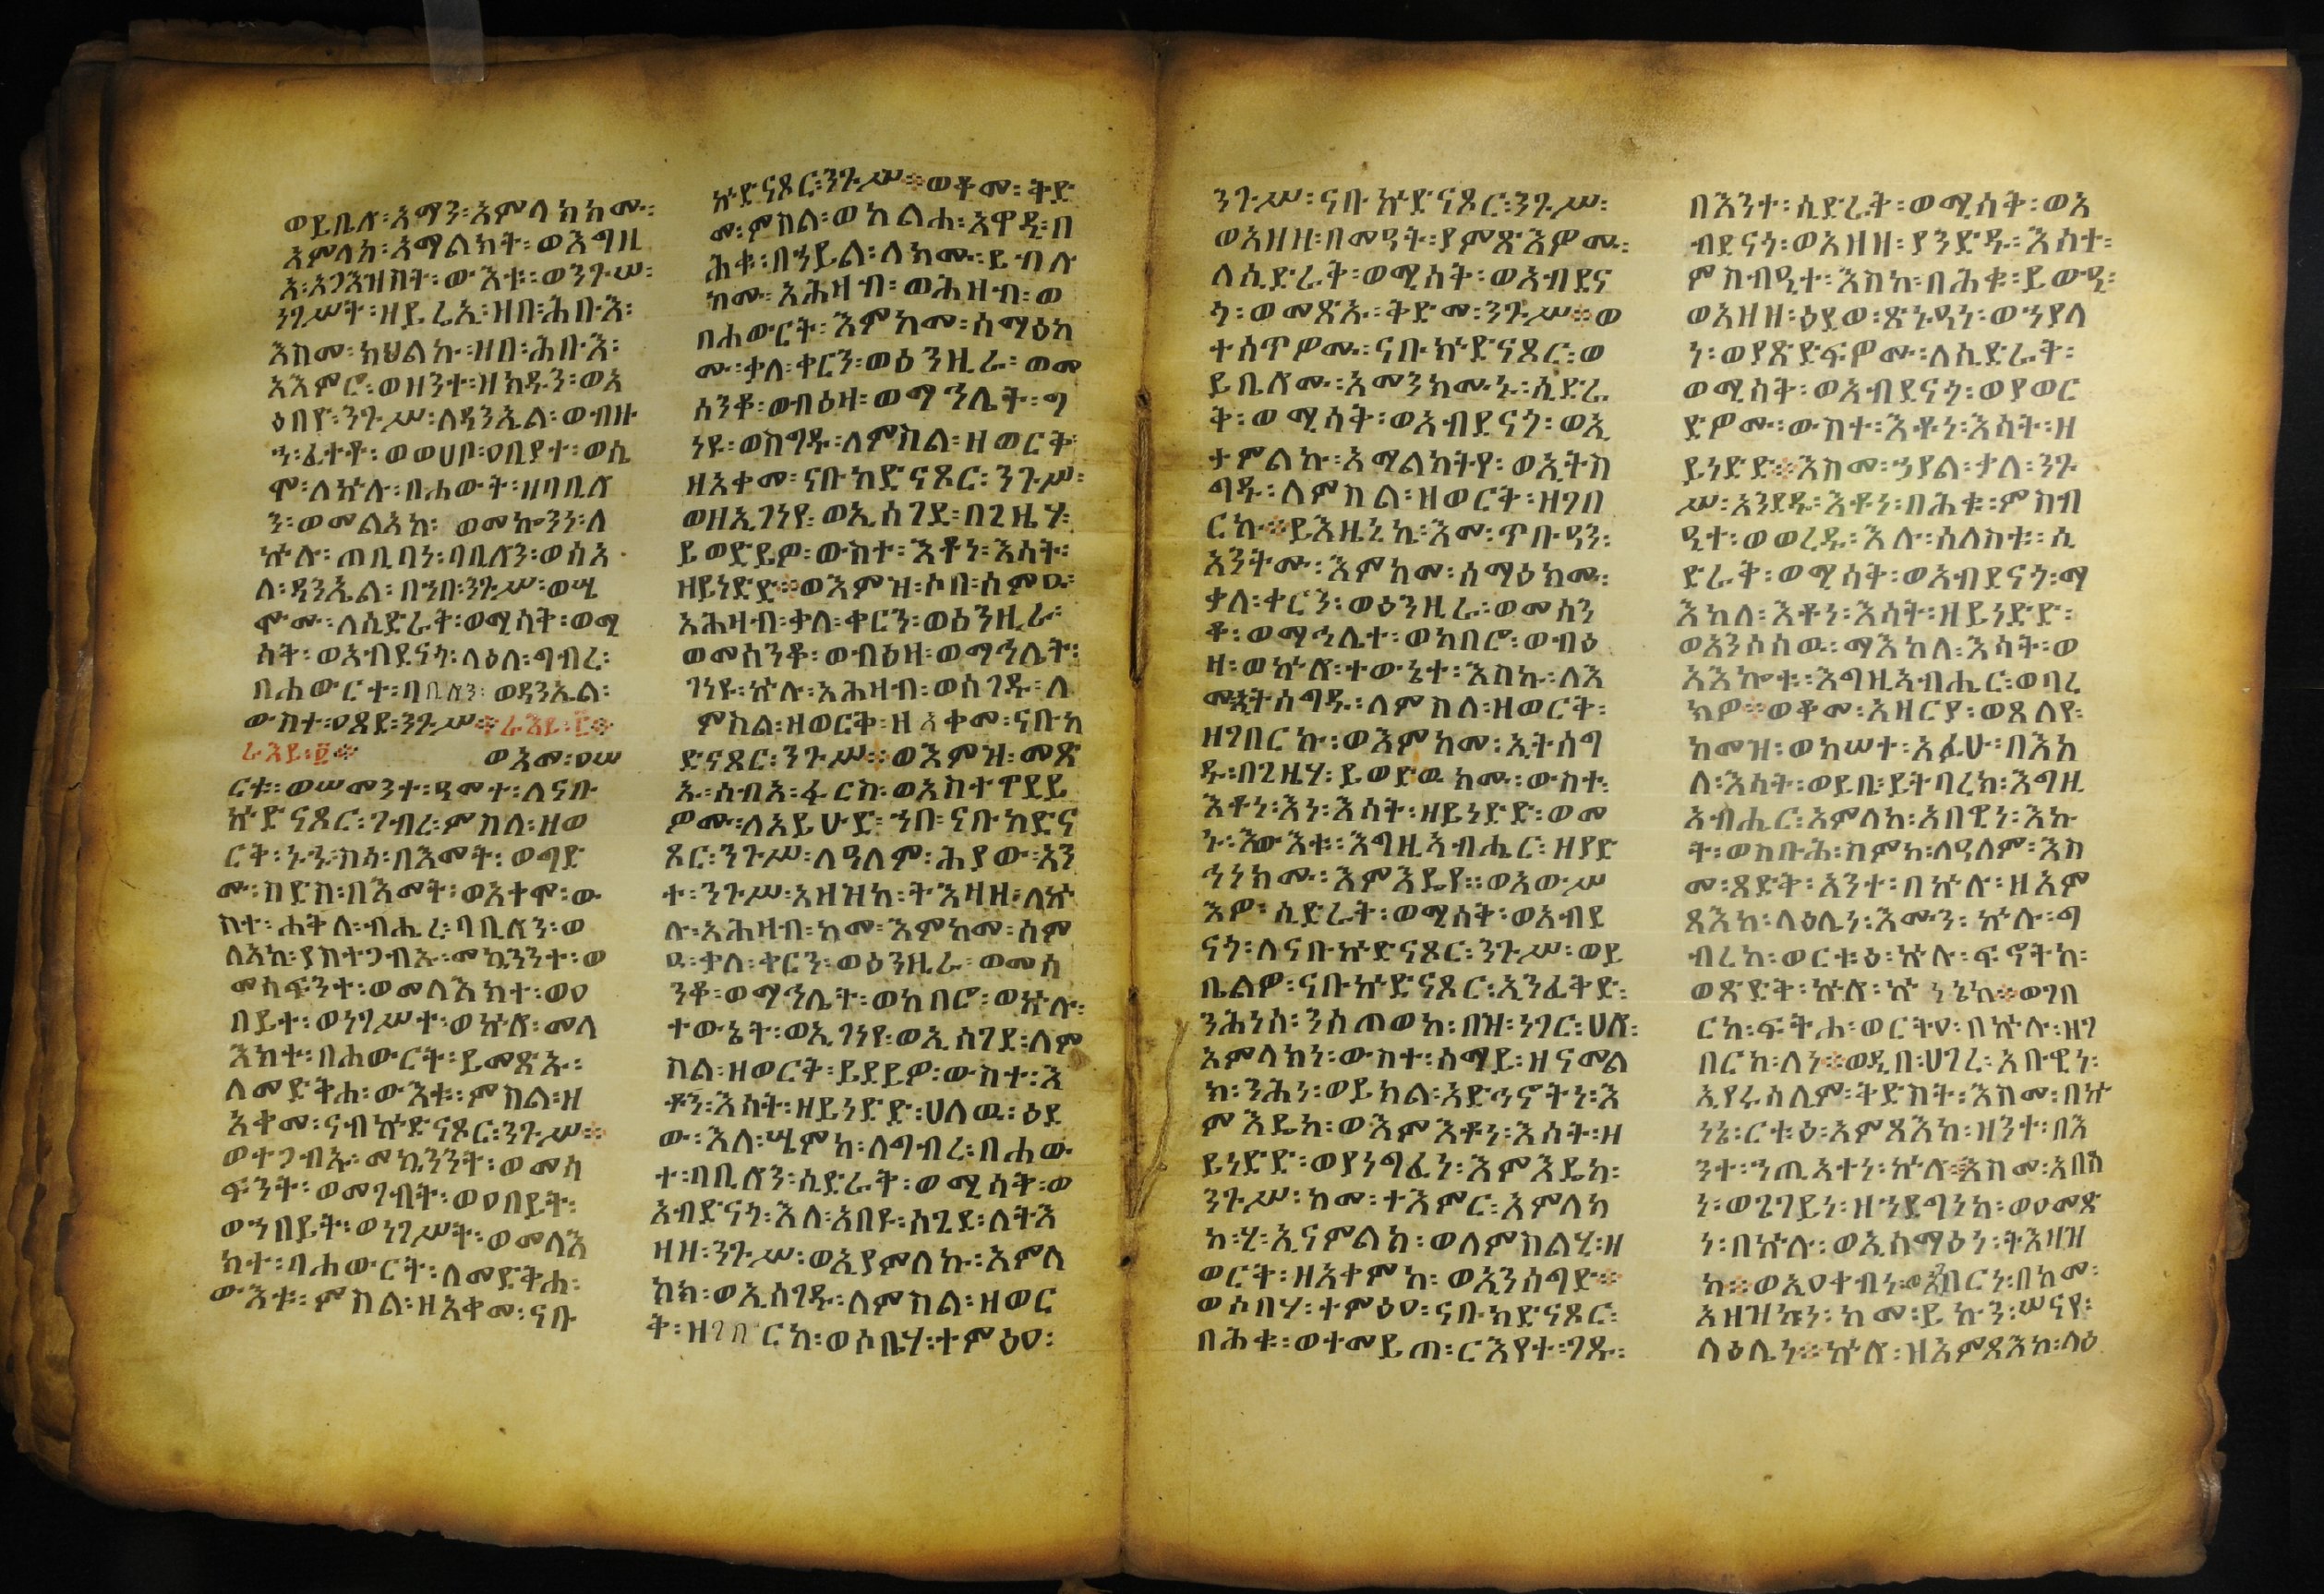 ወይቤሎ፡አማን፡አምላክክሙ፡
አምላከ፡አማልክት፡ወእግዚ
አ፡አጋእዝት፡ውእቱ፡ወንጉሠ፡
ነገሥት፡ዘይሬኢ፡ዘበ፡ሕቡእ፡
እስመ፡ክህልኩ፡ዘበ፡ሕቡእ፡
አእምሮ፡ወዘንተ፡ዘከዱን፡ወአ
ዕበዮ፡ንጉሥ፡ለዳንኤል፡ወብዙ
ኀ፡ፈተቶ፡ወወሀቦ፡ዐቢያተ፡ወሢ
ሞ፡ለኵሉ፡በሐውት፡ዘባቢሎ
ን፡ወመልአከ፡ወመኰንነ፡ለ
ኵሉ፡ጠቢባነ፡ባቢሎን፡ወሰአ
ለ፡ዳንኤል፡በኀበ፡ንጉሥ፡ወሤ
ሞሙ፡ለሲድራቅ፡ወሚሳቅ፡ወሚ
ሳቅ፡ወአብደናጎ፡ላዕለ፡ግብረ፡
በሐውርተ፡ባቢሎን፡ወዳንኤል፡
ውስተ፡ዐጸደ፡ንጉሥ።ራእይ፡፫።
ራእይ፡፬። ወአመ፡ዐሠ
ርቱ፡ወሠመንተ፡ዓመተ፡ለናቡ
ኵድናጾር፡ገብረ፡ምስለ፡ዘወ
ርቅ፡ኑኁ፡ስሳ፡በእመት፡ወግድ
ሙ፡ስድስ፡በእመት፡ወአቀሞ፡ው
ስተ፡ሐቅለ፡ብሔረ፡ባቢሎን፡ወ
ለአከ፡ያስተጋብኡ፡መኳንንተ፡ወ
መሳፍንተ፡ወመላእክተ፡ወዐ
በይተ፡ወነገሥተ፡ወኵሎ፡መላ
እክተ፡በሐውርት፡ይመጽኡ፡
ለመድቅሐ፡ውእቱ፡ምስል፡ዘ
አቀመ፡ናብኵድናጾር፡ንጉሥ።
ወተጋብኡ፡መኳንንት፡ወመሳ
ፍንት፡ወመገብት፡ወዐበይት፡
ወኀበይት፡ወነገሥት፡ወመላእ
ክተ፡ባሐውርት፡ለመድቅሐ፡
ውእቱ፡ምስል፡ዘአቀመ፡ናቡ
ኵድናጾር፡ንጉሥ።ወቆሙ፡ቅድ
መ፡ምስል፡ወከልሐ፡አዋዲ፡በ
ሕቁ፡በኃይል፡ለክሙ፡ይብሉ
ከሙ፡አሕዛብ፡ወሕዝብ፡ወ
በሐውርት፡እምከመ፡ሰማዕክ
ሙ፡ቃለ፡ቀርን፡ወዕንዚራ፡ወመ
ሰንቆ፡ወብዕዛ፡ወማኅሌት፡ግ
ነዩ፡ወስግዱ፡ለምስል፡ዘወርቅ፡
ዘአቀመ፡ናቡከድናጾር፡ንጉሥ፡
ወዘኢገነየ፡ወኢሰገደ፡በጊዜሃ፡
ይወድይዎ፡ውስተ፡እቶነ፡እሳት፡
ዘይነድድ።ወእምዝ፡ሶበ፡ሰምዑ፡
አሕዛብ፡ቃለ፡ቀርን፡ወዕንዚራ፡
ወመሰንቆ፡ወብዕዛ፡ወማኅሌት፡
ገነዩ፡ኵሉ፡አሕዛብ፡ወሰገዱ፡ለ
ምስል፡ዘወርቅ፡ዘአቀመ፡ናቡከ
ድናጾር፡ንጉሥ።ወእምዝ፡መጽ
ኡ፡ሰብአ፡ፋርስ፡ወአስተዋደይ
ዎሙ፡ለአይሁድ፡ኀበ፡ናቡከድና
ጾር፡ንጉሥ፡ለዓለም፡ሕያው፡አን
ተ፡ንጉሥ፡አዘዝከ፡ትእዛዘ፡ለኵ
ሉ፡አሕዛብ፡ከመ፡እምከመ፡ሰም
ዑ፡ቃለ፡ቀርን፡ወዕንዚራ፡ወመሰ
ንቆ፡ወማኅሌት፡ወከበሮ፡ወኵሉ፡
ተውኔት፡ወኢገነየ፡ወኢሰገደ፡ለም
ስል፡ዘወርቅ፡ይደይዎ፡ውስተ፡እ
ቶን፡እሳት፡ዘይነድድ፡ሀለዉ፡ዕደ
ው፡እለ፡ሤምከ፡ለግብረ፡በሐው
ተ፡ባቢሎን፡ሲድራቅ፡ወሚሳቅ፡ወ
አብድናጎ፡እለ፡አበዩ፡ሰጊደ፡ለትእ
ዛዘ፡ንጉሥ፡ወኢያምለኩ፡አምላ
ከከ፡ወኢሰገዱ፡ለምስል፡ዘወር
ቅ፡ዘገበርከ፡ወሶቤሃ፡ተምዕዐ፡
ንጉሥ፡ናቡኵድናጾር፡ንጉሥ፡
ወአዘዘ፡በመዓት፡ያምጽእዎሙ፡
ለሲድራቅ፡ወሚሳቅ፡ወአብደና
ጎ፡ወመጽኡ፡ቅድመ፡ንጉሥ።ወ
ተሰጥዎሙ፡ናቡኵድናጾር፡ወ
ይቤሎሙ፡አመንክሙኑ፡ሲድራ
ቅ፡ወሚሳቅ፡ወአብደናጎ፡ወኢ
ታምልኩ፡አማልክትየ፡ወኢትስ
ግዱ፡ለምስል፡ዘወርቅ፡ዘገበ
ርኩ።ይእዜኒኬ፡እመ፡ጥቡዓን፡
አንትሙ፡እምከመ፡ሰማዕክሙ፡
ቃለ፡ቀርን፡ወዕንዚራ፡ወመሰን
ቆ፡ወማኅሌተ፡ወከበሮ፡ወብዕ
ዛ፡ወኵሎ፡ተውኔተ፡እስኩ፡ለእ
መኢትሰግዱ፡ለምስለ፡ዘወርቅ፡
ዘገበርኩ፡ወእምከመ፡ኢትሰግ
ዱ፡በጊዜሃ፡ይወድዉክሙ፡ውስተ፡
እቶነ፡እነ፡እሳት፡ዘይነድድ፡ወመ
ኑ፡እውእቱ፡እግዚአብሔር፡ዘያድ
ኅነክሙ፡እምእዴየ።ወአውሥ
እዎ፡ሲድራቅ፡ወሚሳቅ፡ወአብደ
ናጎ፡ለናቡኵድናጾር፡ንጉሥ፡ወይ
ቤልዎ፡ናቡኵድናጾር፡ኢንፈቅድ፡
ንሕነሰ፡ንሰጠወከ፡በዝ፡ነገር፡ሀሎ፡
አምላክነ፡ውስተ፡ሰማይ፡ዘናመል
ክ፡ንሕነ፡ወይክል፡አድኅኖትነ፡እ
ምእዴከ፡ወእምእቶነ፡እሳት፡ዘ
ይነድድ፡ወያነግፈነ፡እምእዴከ፡
ንጉሥ፡ከመ፡ተእምር፡አምላከ
ከ፡ሂ፡ኢናምልክ፡ወለምስልሂ፡ዘ
ወርቅ፡ዘአቀምከ፡ወኢንሰግድ።
ወሶበሃ፡ተምዕዐ፡ናቡከድናጾር፡
በሕቁ፡ወተመይጠ፡ርእየተ፡ገጹ፡
በእንተ፡ሲድራቅ፡ወሚሳቅ፡ወአ
ብደናጎ፡ወአዘዘ፡ያንድዱ፡እስተ፡
ምስብዒተ፡እስከ፡በሕቁ፡ይውዒ፡
ወአዘዘ፡ዕደወ፡ጽኑዓነ፡ወኀያላ
ነ፡ወያጽድፍዎሙ፡ለሲድራቅ፡
ወሚሳቅ፡ወአብደናጎ፡ወያወር
ድዎሙ፡ውስተ፡እቶነ፡እሳት፡ዘ
ይነድድ።እስመ፡ኃያል፡ቃለ፡ንጉ
ሥ፡አንደዱ፡እቶነ፡በሕቁ፡ምስብ
ዒተ፡ወወረዱ፡እሉ፡ሰለስቱ፡ሲ
ድራቅ፡ወሚሳቅ፡ወአብደናጎ፡ማ
እከለ፡እቶነ፡እሳት፡ዘይነድድ፡
ወአንሶሰዉ፡ማእከለ፡እሳት፡ወ
አእኰቱ፡እግዚአብሔር፡ወባረ
ክዎ።ወቆመ፡አዘርያ፡ወጸለየ፡
ከመዝ፡ወከሠተ፡አፉሁ፡በእከ
ለ፡እሳት፡ወይቤ፡ይትባረክ፡እግዚ
አብሔር፡አምላከ፡አበዊነ፡እኩ
ት፡ወስቡሕ፡ስምከ፡ለዓለም፡እስ
መ፡ጻድቅ፡አንተ፡በኵሉ፡ዘአም
ጻእከ፡ላዕሌነ፡እሙን፡ኵሉ፡ግ
ብረከ፡ወርቱዕ፡ኵሉ፡ፍኖትከ፡
ወጽድቅ፡ኵሎ፡ኵነኔከ።ወገበ
ርከ፡ፍትሐ፡ወርትዐ፡በኵሉ፡ዘገ
በርከ፡ለነ።ወዲበ፡ሀገረ፡አቡዊነ፡
ኢየሩሳሌም፡ቅድስት፡እስመ፡በኵ
ነኔ፡ርቱዕ፡አምጻእከ፡ዘንተ፡በእ
ንተ፡ኀጢአተነ፡ኵሎ፡እስመ፡አበስ
ነ፡ወጌገይነ፡ዘኀደግነከ፡ወዐመጽ
ነ፡በኵሉ፡ወኢሰማዕነ፡ትእዛዝ
ከ።ወኢዐቀብነ፡ወኢገበርነ፡በከመ፡
አዘዝከነ፡ከመ፡ይኩን፡ሠናየ፡
ላዕሌነ።ኵሎ፡ዘአምጻእከ፡ላዕ